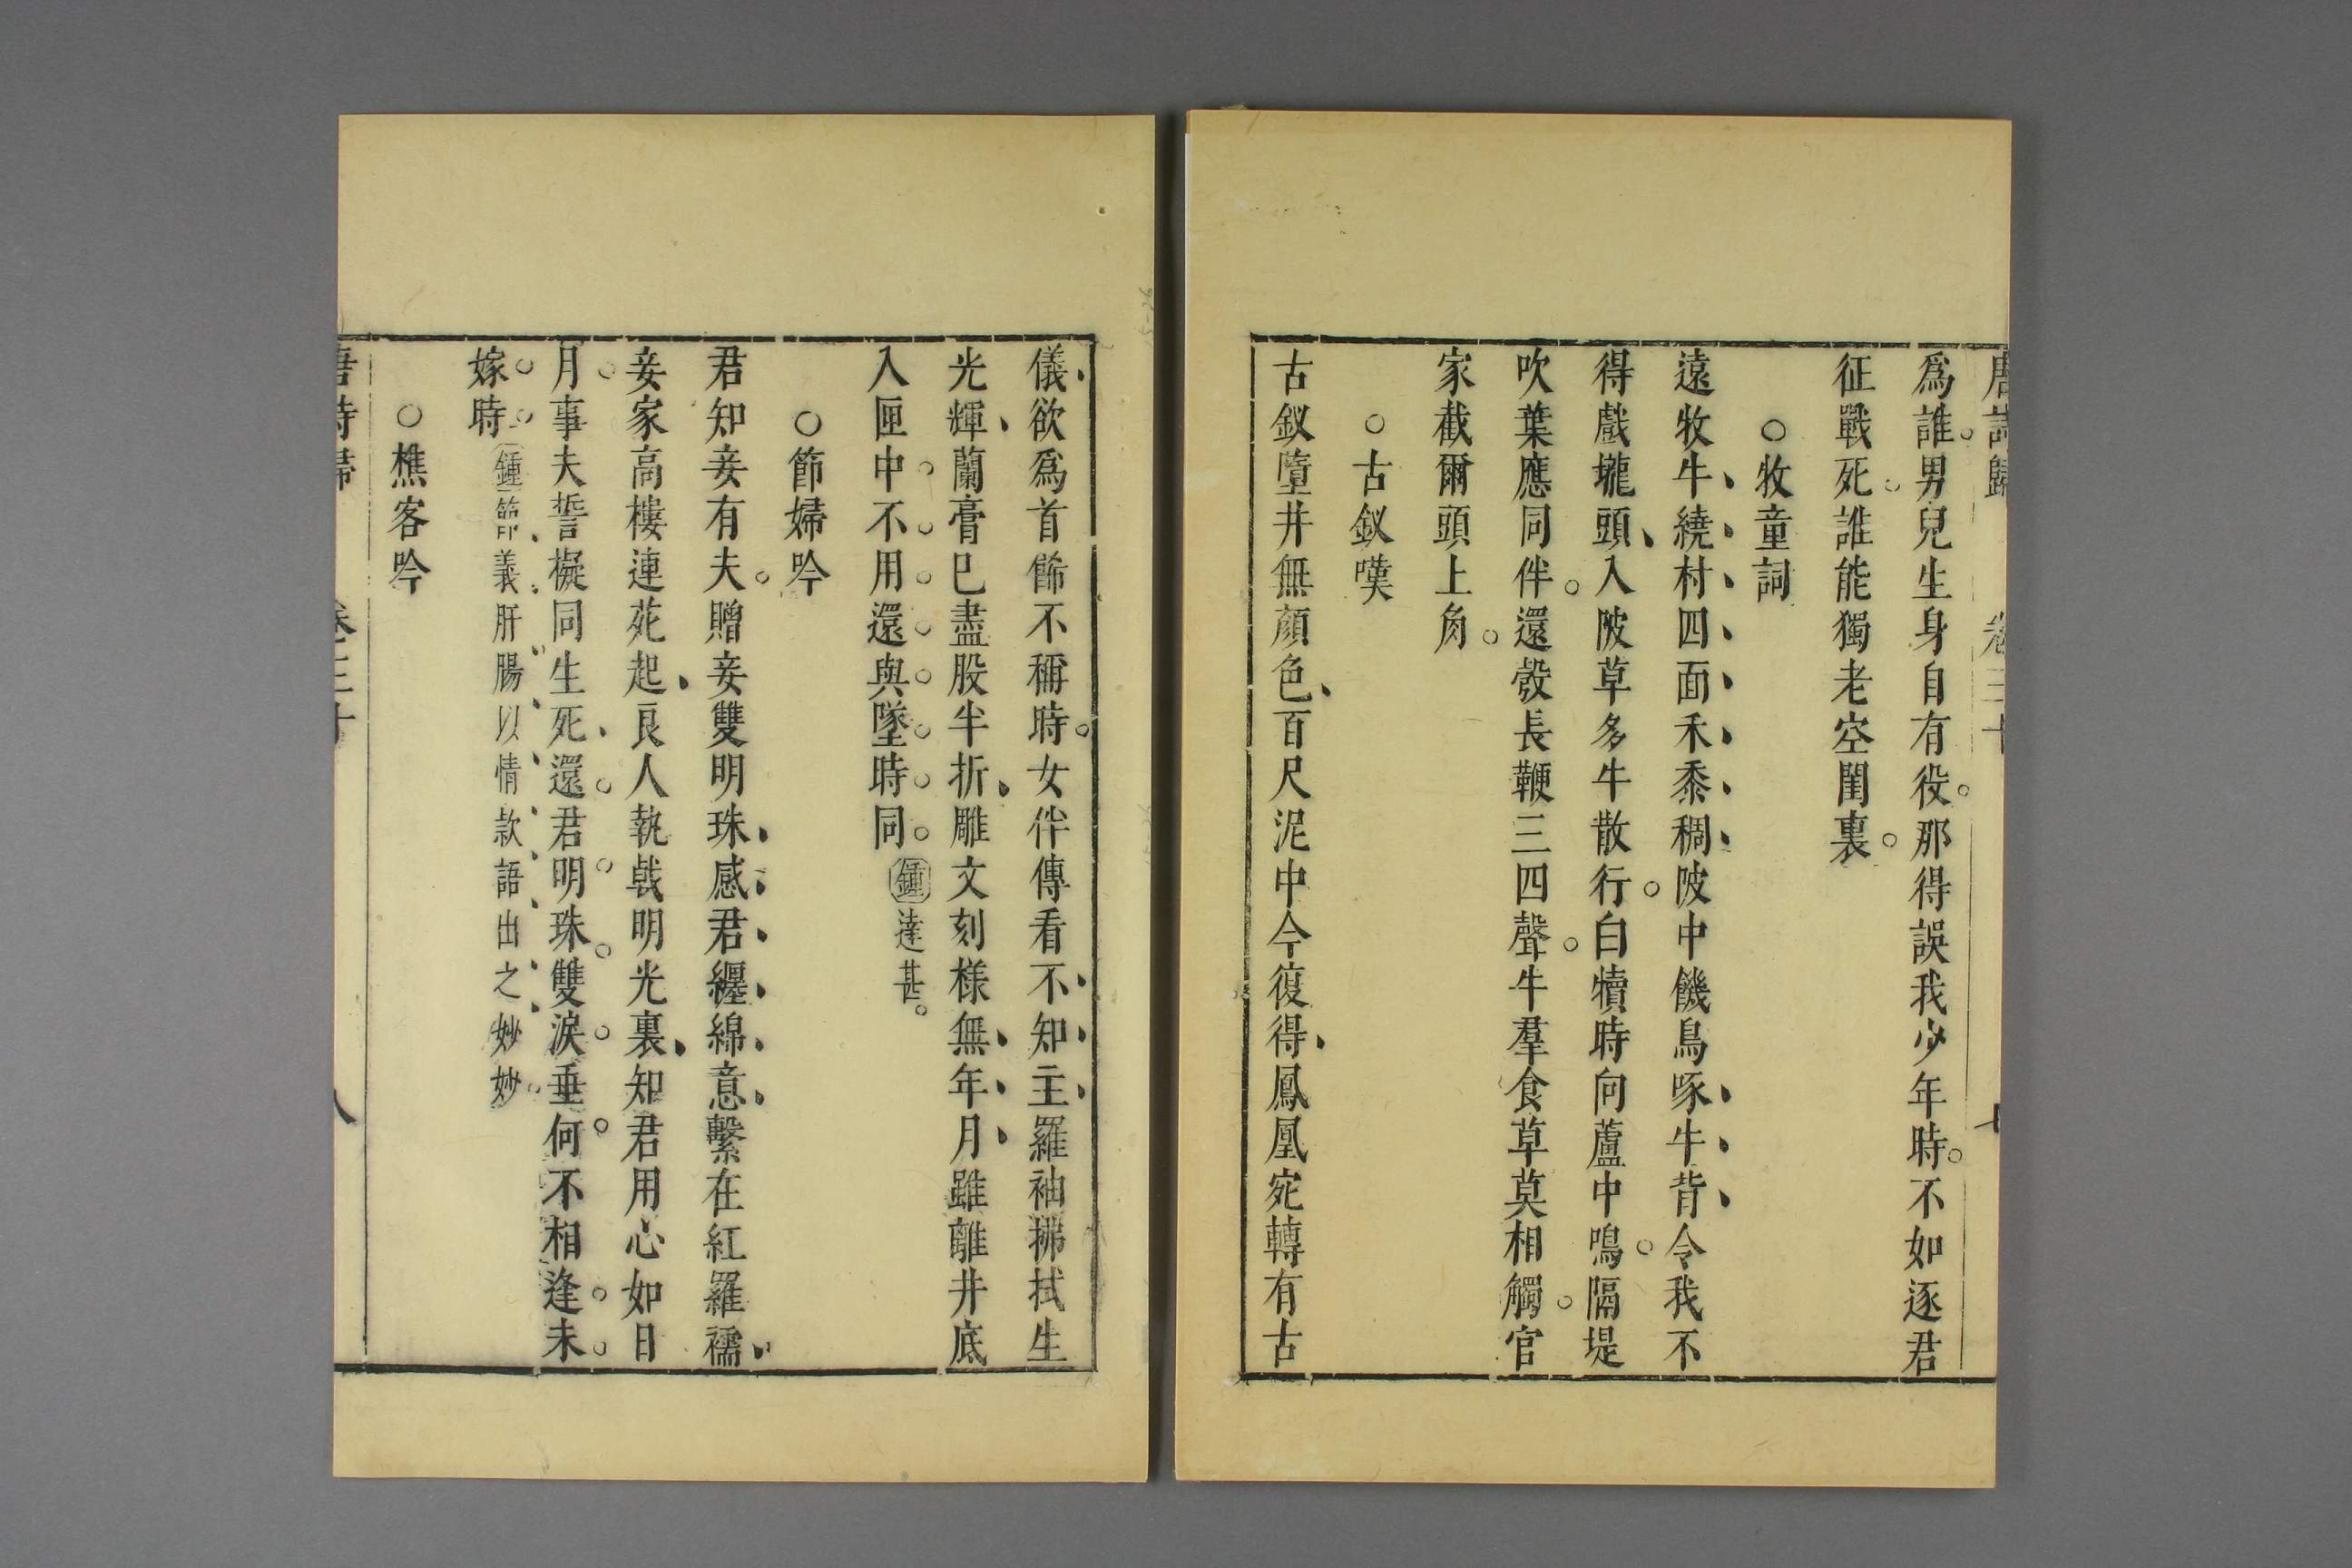 唐詩歸 卷三十 七
爲誰男兒生身自有役那得誤我少年時不如逐君
征戰死誰能獨老空閨裏
○牧童詞
遠牧牛繞村四面禾黍稠陂中饑鳥啄牛背令我不
得戲壠頭入陂草多牛散行白犢時向蘆中鳴隔堤
吹葉應同伴還𣪠長鞭三四聲牛羣食草莫相觸官
家截爾頭上角
○古釵嘆
古釵墮井無顏色百尺泥中今復得鳳凰宛轉有古
儀欲爲首飾不稱時女伴傳看不知主羅袖拂拭生
光輝蘭膏已盡股半折雕文刻樣無年月雖離井底
入匣中不用還與墜時同鍾達甚
○節婦吟
君知妾有夫贈妾雙明珠感君纏綿意繫在紅羅襦
妾家高樓連苑起良人執戟明光裏知君用心如日
月事夫誓擬同生死還君明珠雙淚垂何不相逢未
嫁時鍾節義肝腸以情款語出之妙妙
○樵客吟
唐詩歸 卷三十 八